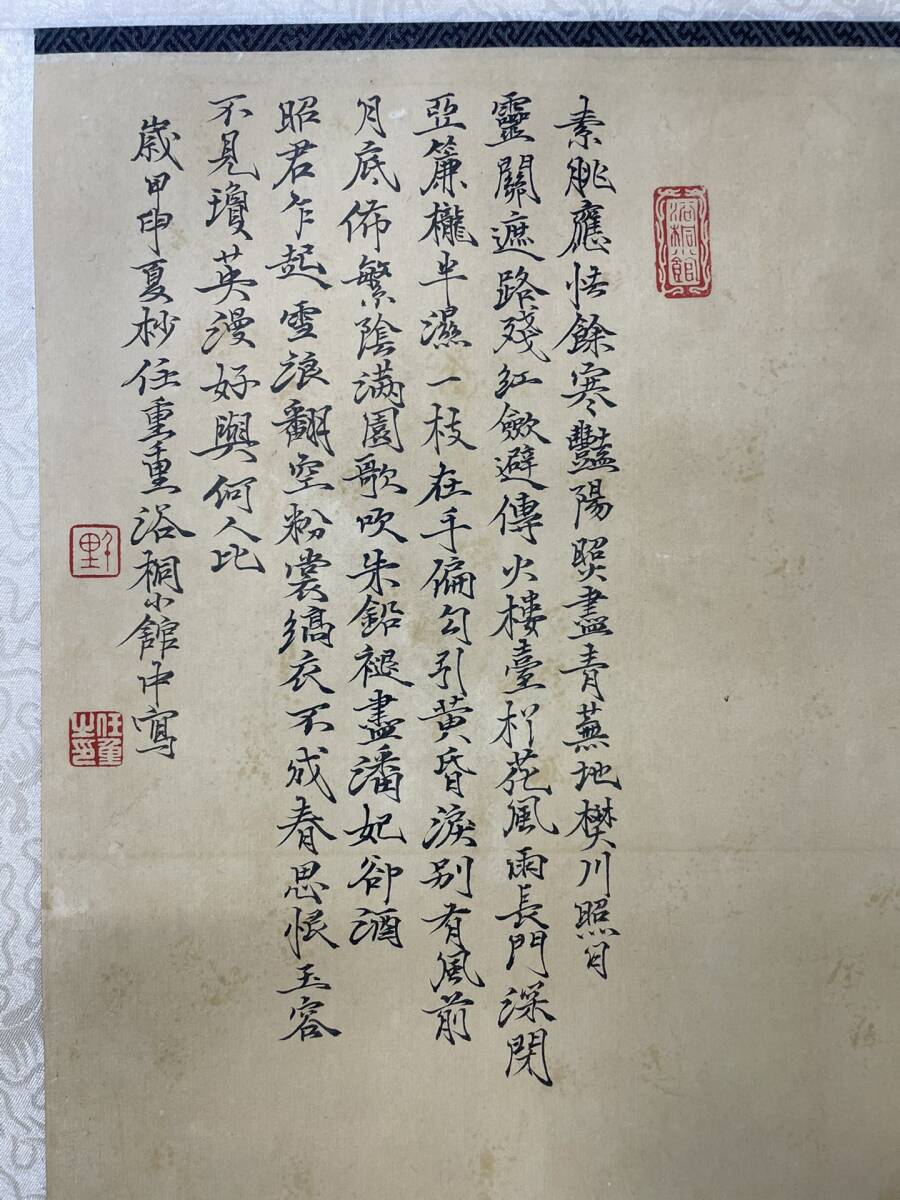 浴桐館
素朓應怯餘寒豔陽盡青蕪地樊川照日
靈關遮路殘紅歛避傳火樓臺花風雨長門深閉
亞簾櫳半濕一枝在手偏勾引黄昏淚别有風前
月底佈繁陰滿園歌吹朱鉛褪盡潘妃卻酒
昭君乍起雪浪翻空粉裳縞衣不成春思恨玉容
不見瓊英漫好與何人比
歲甲申夏杪任重重浴桐小館中寫
野
任重之印